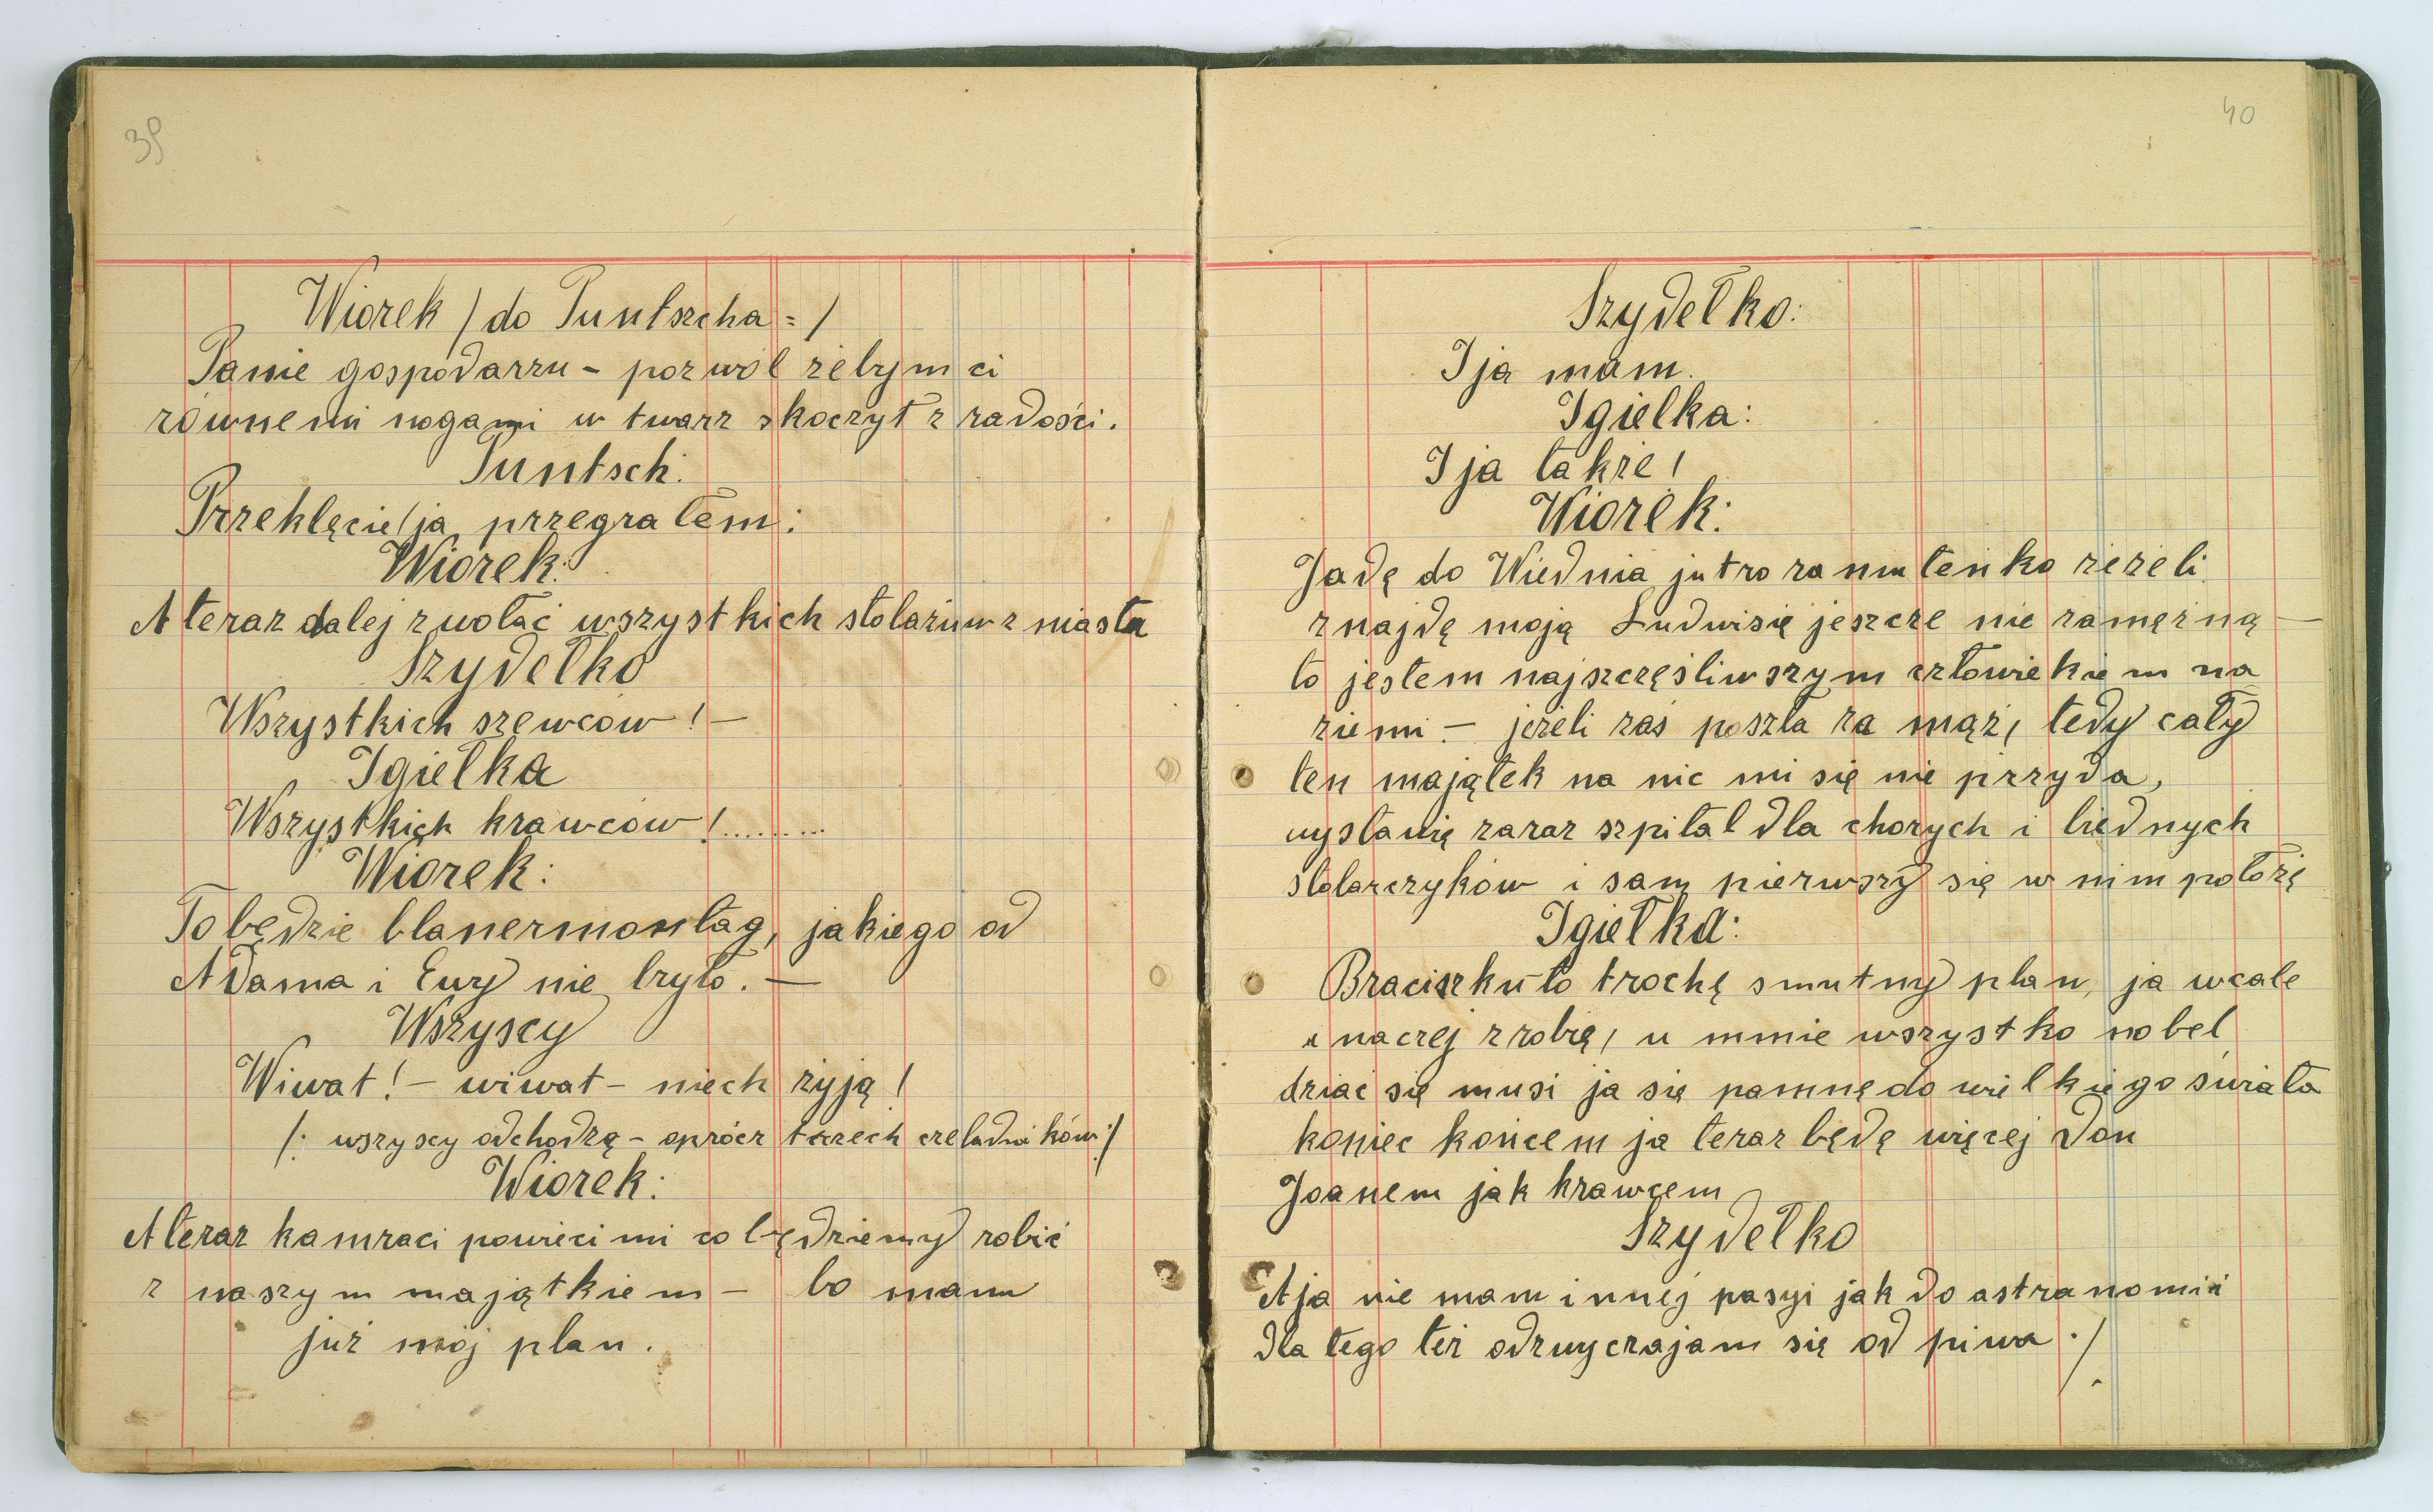 39
Wiorek /do Puntscha = /
Panie gospodarzu - pozwól żebym ci
równemi nogami w twarz skoczył z radości.
Puntsch:
Przeklęcie / ja przegrałem:
Wiorek:
A teraz dalej zwołać wszystkich stolarzuw z miasta
Szydełko
Wszystkich szewcow! —
Igiełka
Wszystkich krawcow!.........
Wiorek:
To będzie blauermontag, jakiego od
Adama i Ewy nie było. —
Wszyscy
Wiwat! - wiwat - niech żyją!
/: wszyscy odchodzą - oprócz trzech czeladników :/
Wiorek:
A teraz kamraci powiécimi co będziemy robić
z naszym majątkiem - bo mam
już mój plan.
40
Szydełko:
I ja mam.
Igielka:
I ja także!
Wiorek:
Jadę do Wiednia jutro raniuteńko żeżeli
znajdę moją Ludwisię jeszcze nie zamężną —
to jestem najszczęśliwszym człowiekiem na
ziemi. — jeżeli zaś poszła za mąż, tedy cały
ten majątek na nic mi się nie przyda,
wystawię zaraz szpital dla chorych i biednych
stolarczyków i sam pierwszy się w nim położę
Igiełka:
Braciszku to trochę smutny plan, ja wcale
inaczej zrobię, u mnie wszystko nobel
dziać się musi ja się pamnę do wielkiego świata
koniec końcem ja teraz będę więcej Don
Joanem jak krawcem
Szydełko
A ja nie mam innej pasyi jak do astranomii
dla tego też odzwyczajam się od piwa ./